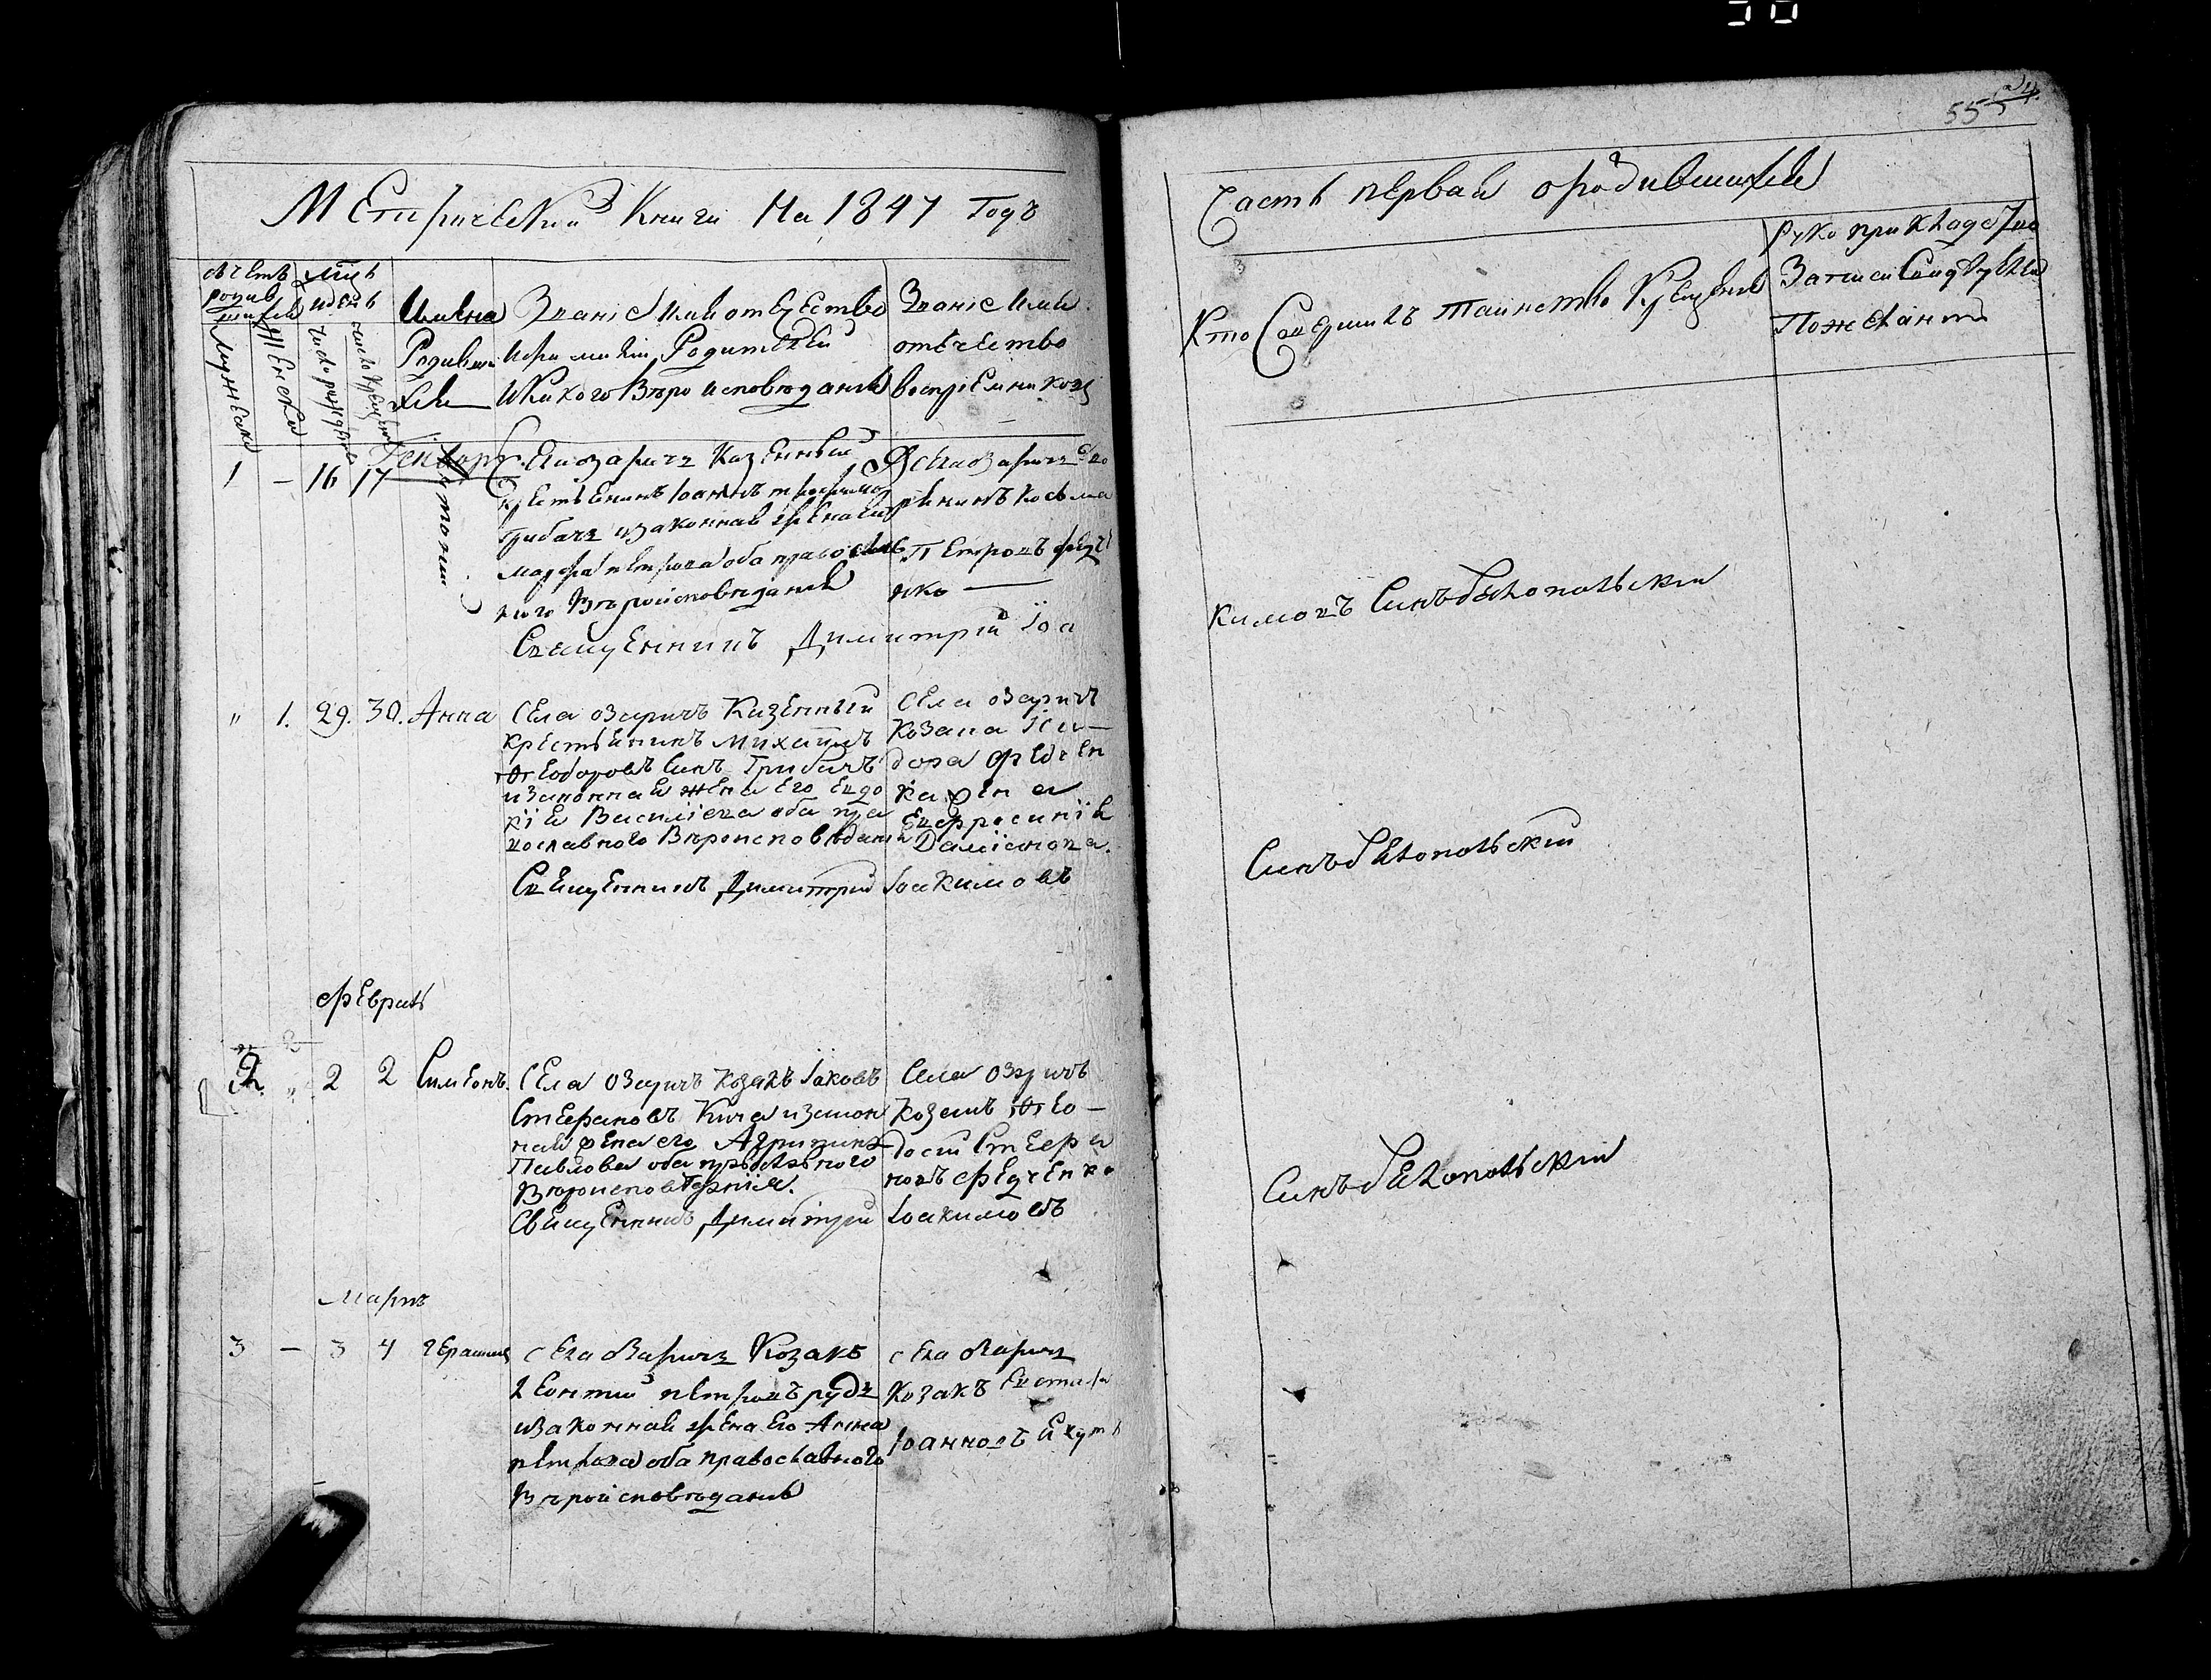 Метрической Книги На 1847 Годъ
Часть первая о родившихся
55
счетъ родив шихся
Мужеска
Женска
мцъ и день
число рожденія
число крещенія
Имена
Родивши
хся
Званіе Имя отечество
и фамилія Родителей
и какого Вѣроисповѣданія
Званіе Имя
отечество
воспріемниковъ
Кто Совершилъ таинство Крещенія
Рукоприкладство
Записи Свидѣтелей
По желанію
Генварь
1 – 16 17
Антоній
Села озаричъ Казенный
крестьянинъ Іоаннъ трофимов
грибачъ и законная жена его
марфа петрова оба православ
ного Вѣроисповѣданія
Села озаричъ дво
рянинъ Косьма
Петровъ федч
нко
Священникъ Димитрій Іоа
кимовъ Синъ Белопольскій
" 1. 29. 30. Анна
Села озаричъ Казенный
крестьянинъ Михаилъ
Ѳеодоровъ Синъ Грибачъ
и законная жена его Евдо
кія Василіева оба пра
вославного Вѣроисповѣданія
Села озаричъ
козака Иси–
дора федчен
ка жена
Евфросинія
Даміанова.
Священникъ Димитрій Іоакимовъ
Синъ Белопольскій
февраль
2 " 2 2 Симеонъ.
Села озаричъ козакъ Іаковъ
Стефановъ Кича и закон
ная жена его Агрипина
Павлова оба православного
Вѣроисповѣданія.
Села озаричъ
козакъ Ѳео–
досій Стефа
новъ федченко
Священникъ Димитрій Іоакимовъ
Синъ Белопольскій
Мартъ
3 – 3 4 Герасимъ
села озаричъ Козакъ
леонтий петровъ рудь
и законная жена его Анна
петрова оба православного
Вѣроисповѣданія
села озаричъ
Козакъ Евстафи
Іоанновъ